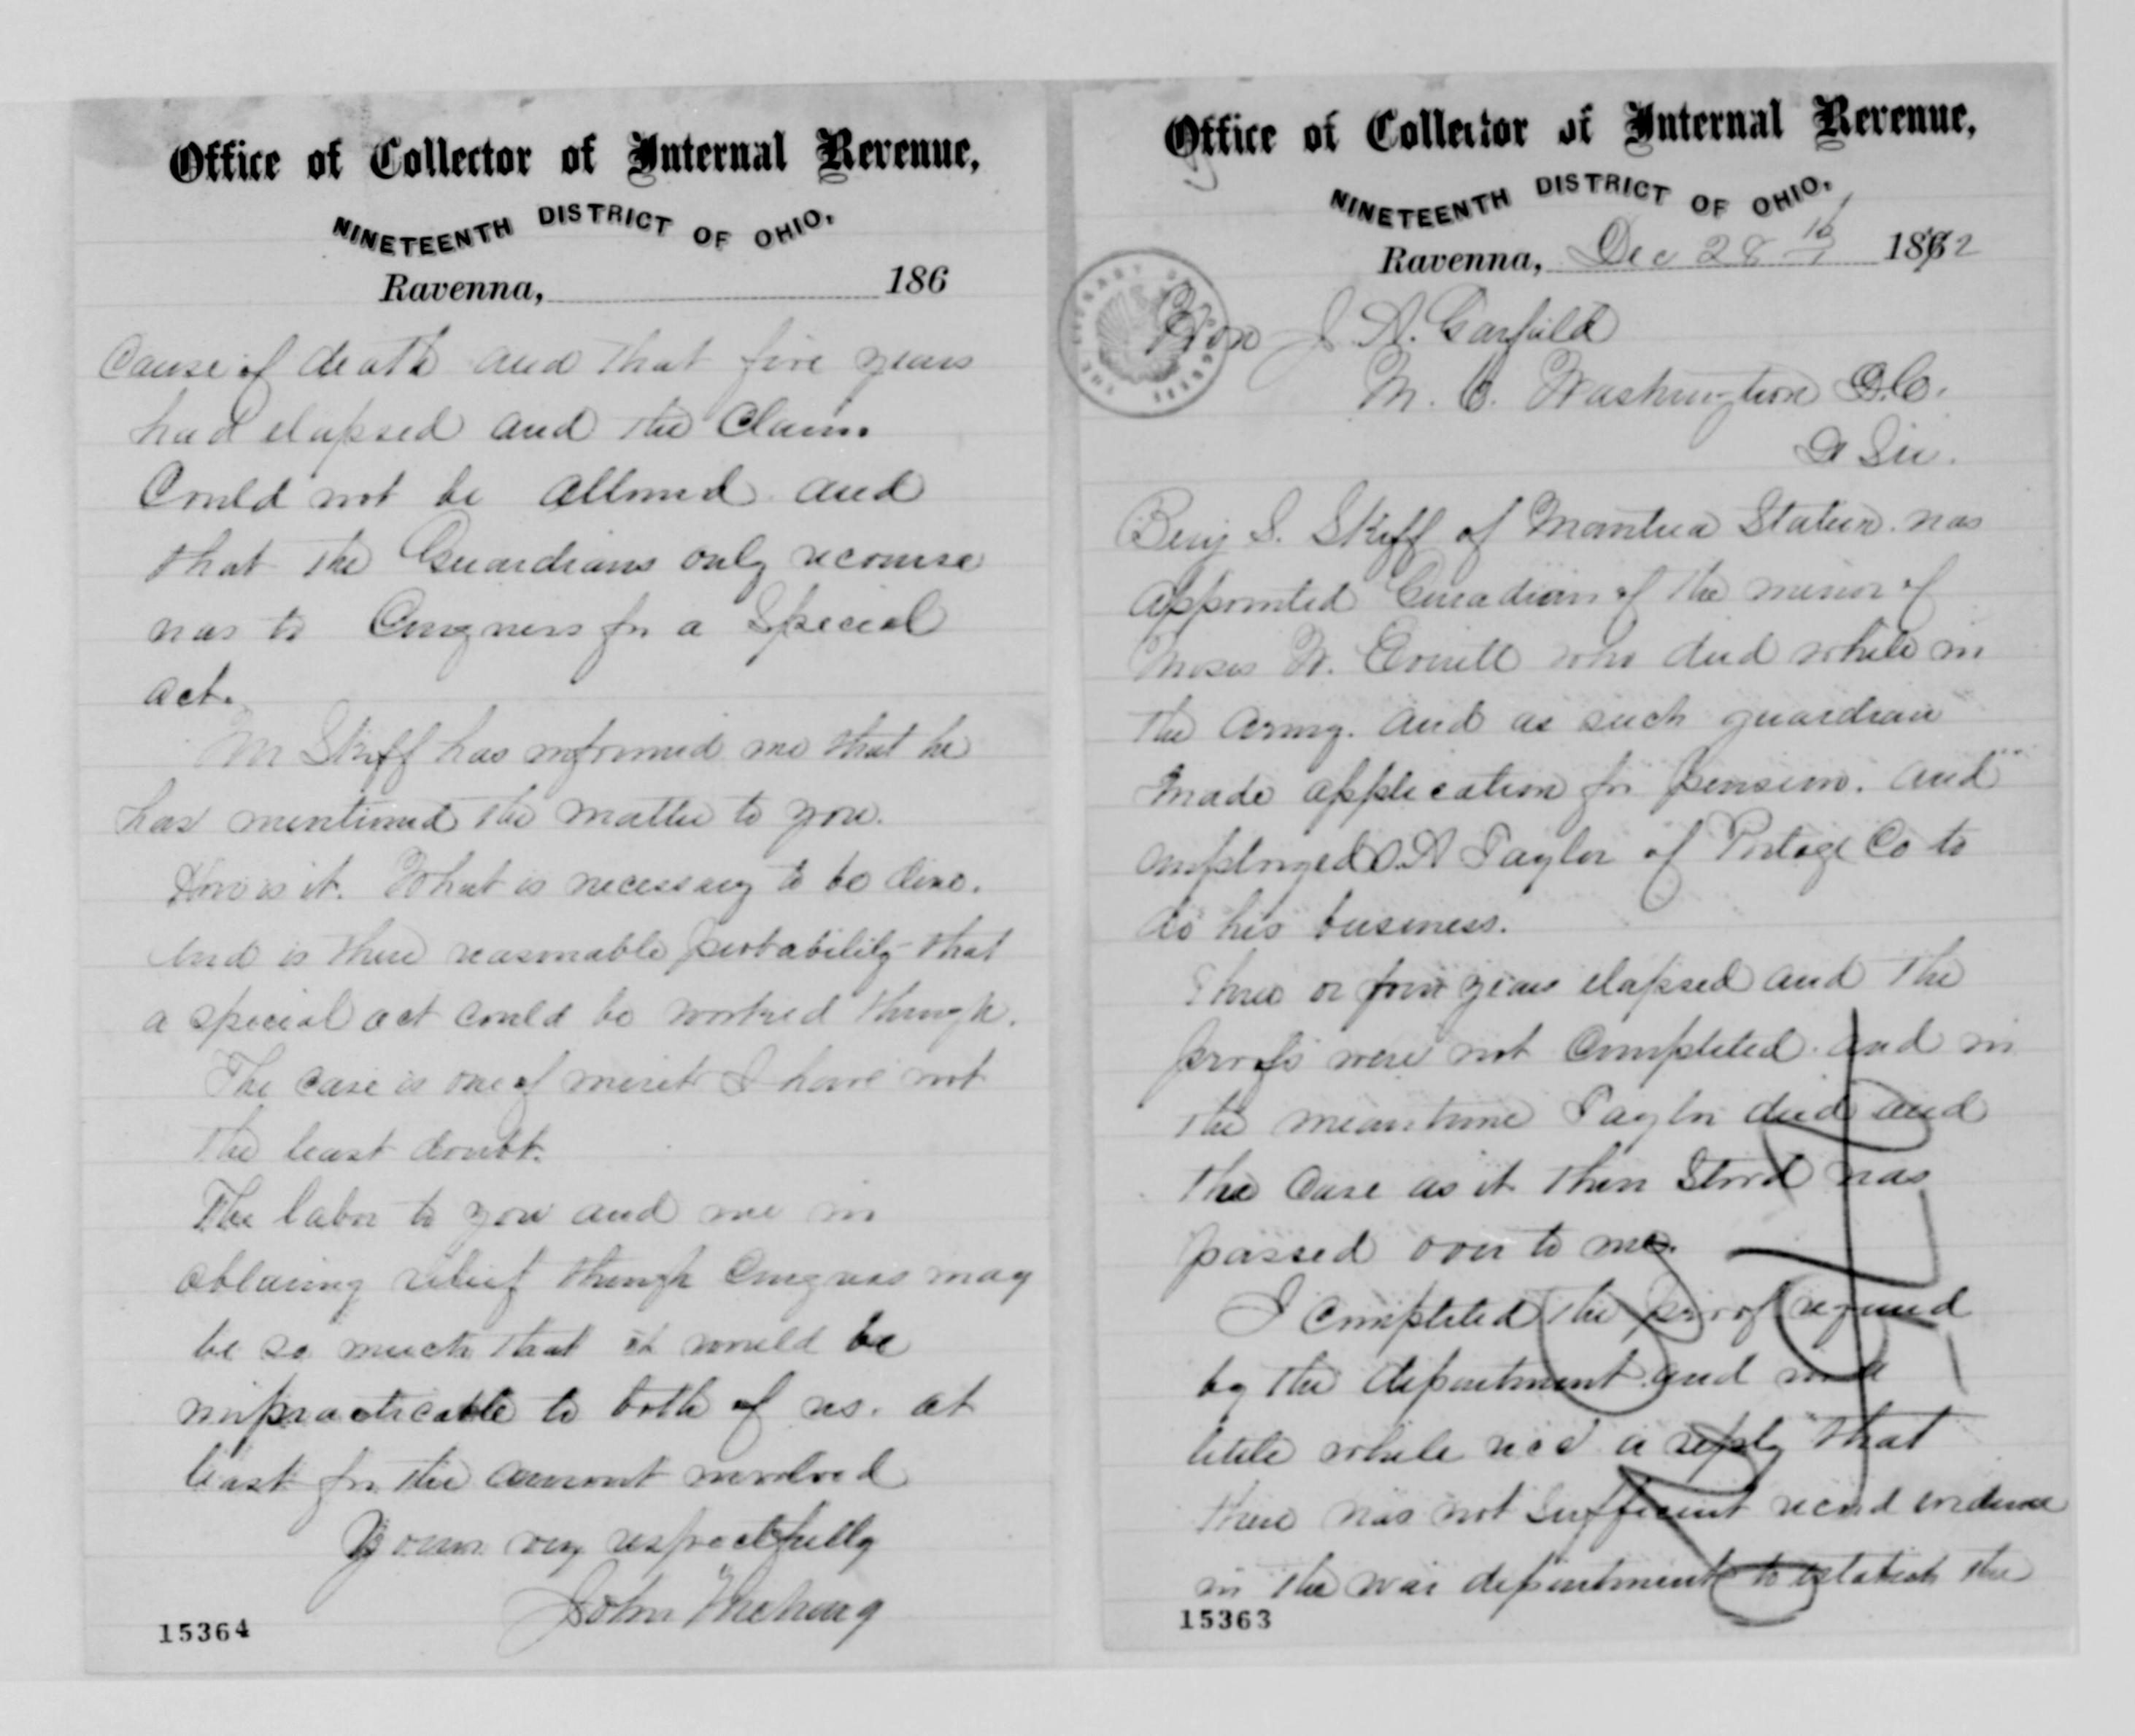 Office of Collector of Internal Revenue,
NINETEENTH DISTRICT OF OHIO.
Ravenna, Dec 28 1872
Hon J. A. Garfield
M. C. Washington D.C.
D Sir.
Benj S. Skiff of Mantua Station was
appointed Guardian of the minor of
Moses W. who died while in
the army. and as such guardian
made application for pension. and
employed O.A Taylor of Portage Co to
do his business.
Three or four years elapsed and the
proofs were not completed. and in
the meantime Taylor died and
the case as it then stood was
passed over to me.
I completed the proof required
by the department and in a
little while rec'd a reply that
there was not sufficient record evidence
in the war department to establish the
15363
Office of Collector of Internal Revenue,
NINETEENTH DISTRICT OF OHIO.
Ravenna, 186
Cause of death and that five years
had elapsed and the Claim
Could not be allowed and
that the Guardians only recourse
was to Congress for a Special
act.
Mr Skiff has informed me that he
has mentioned the matter to you.
How is it. What is necessary to be done.
And is there reasonable probability that
a special act could be worked through.
The case is one of merit I have not
the least doubt.
The labor to you and me in
obtaining relief through Congress may
be so much that it would be
impracticable to both of us. at
least for the amount involved
Yours very respectfully
John
15364